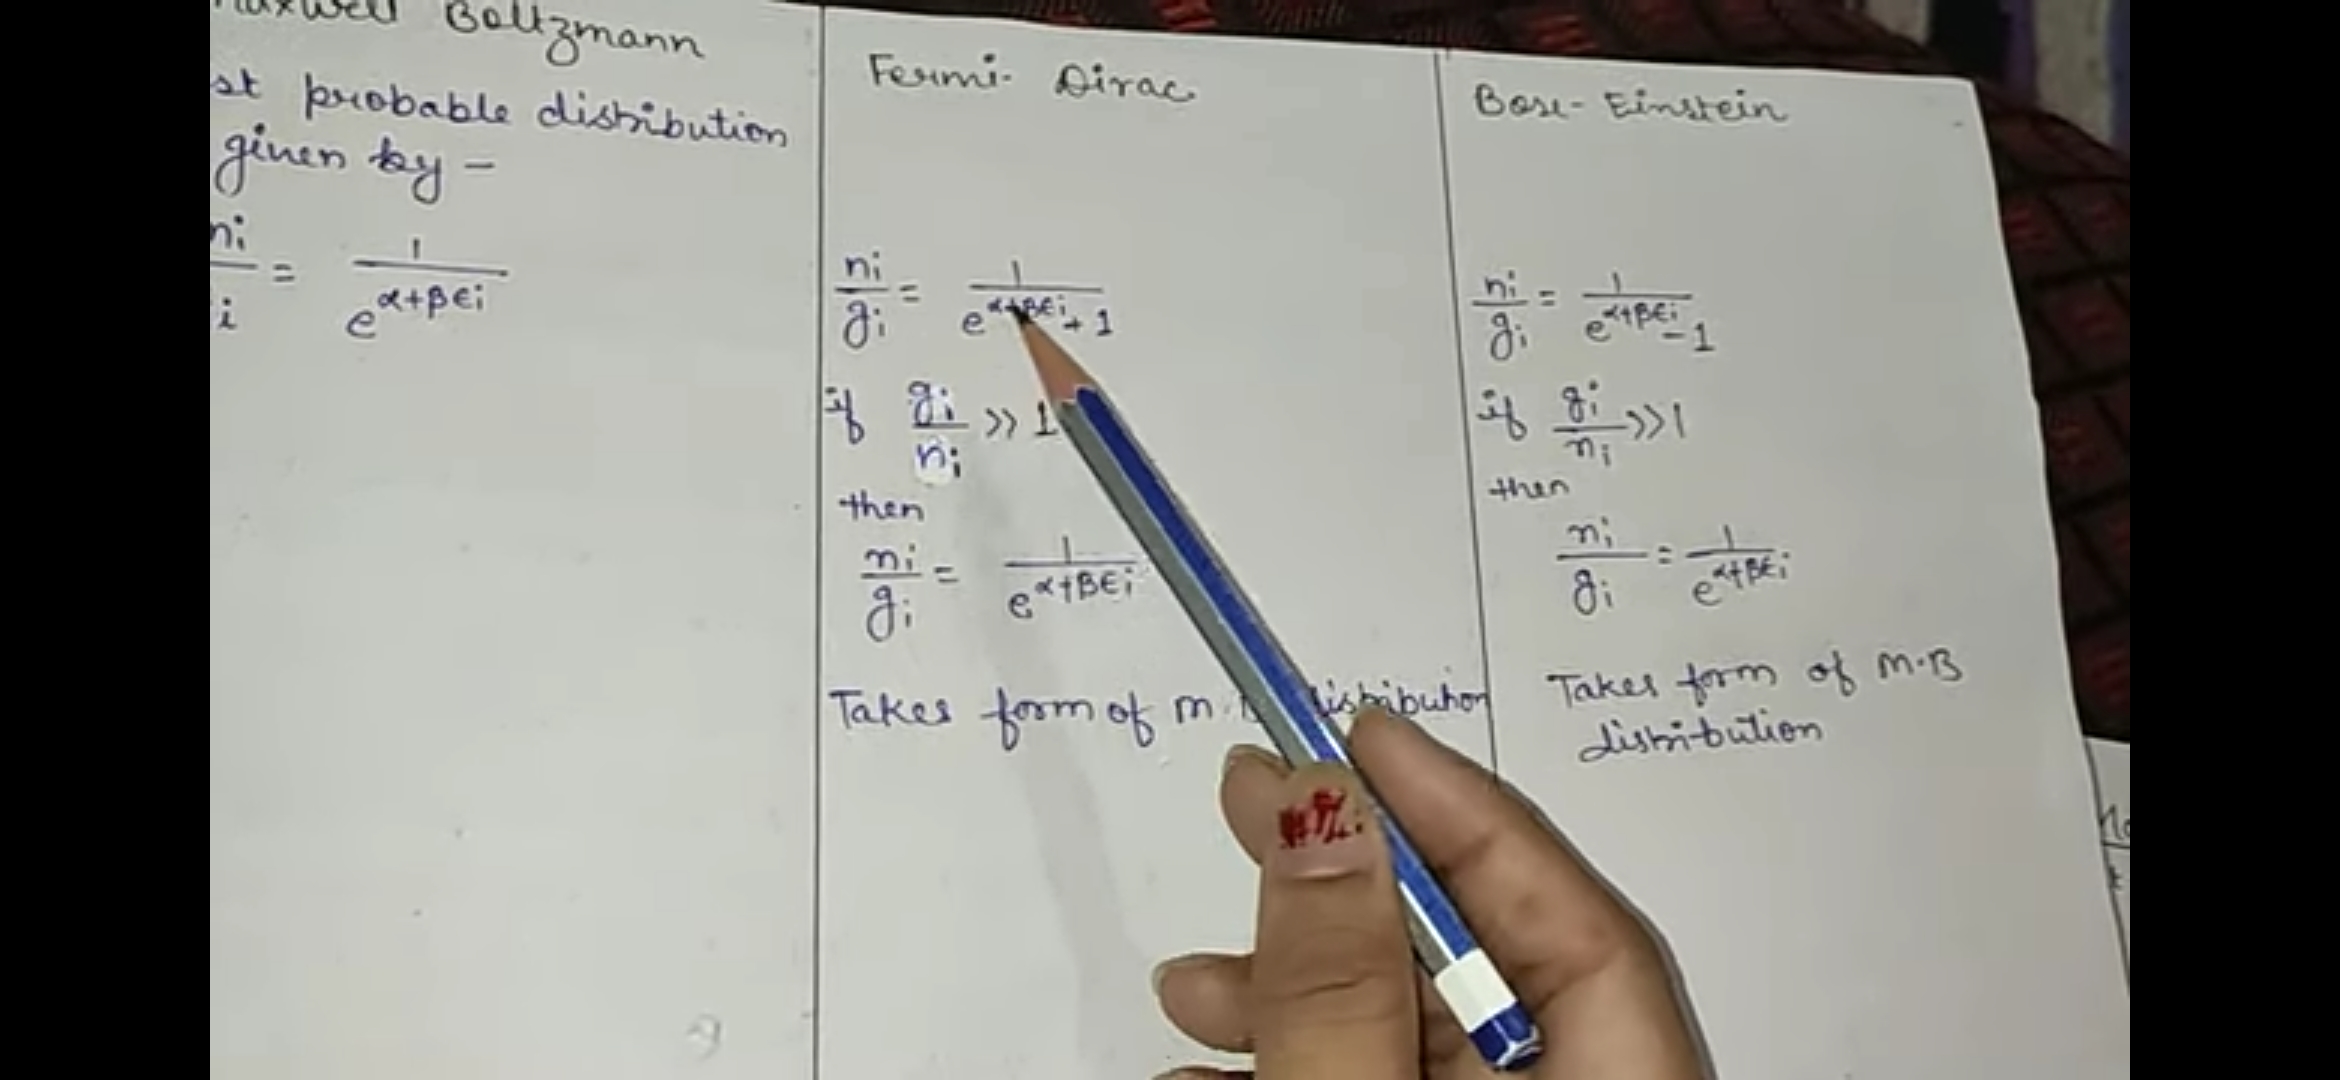 Maxwell Boltzmann
st probable distribution
given by -
ni/i = 1/e^α+βϵi
Fermi- Dirac
ni/gi = 1/e^α+βϵi + 1
if gi/ni >> 1
then
ni/gi = 1/e^α+βϵi
Takes form of M. distribution
Bose- Einstein
ni/gi = 1/e^α+βϵi - 1
if gi/ni >> 1
then
ni/gi = 1/e^α+βϵi
Takes form of M.B
distribution